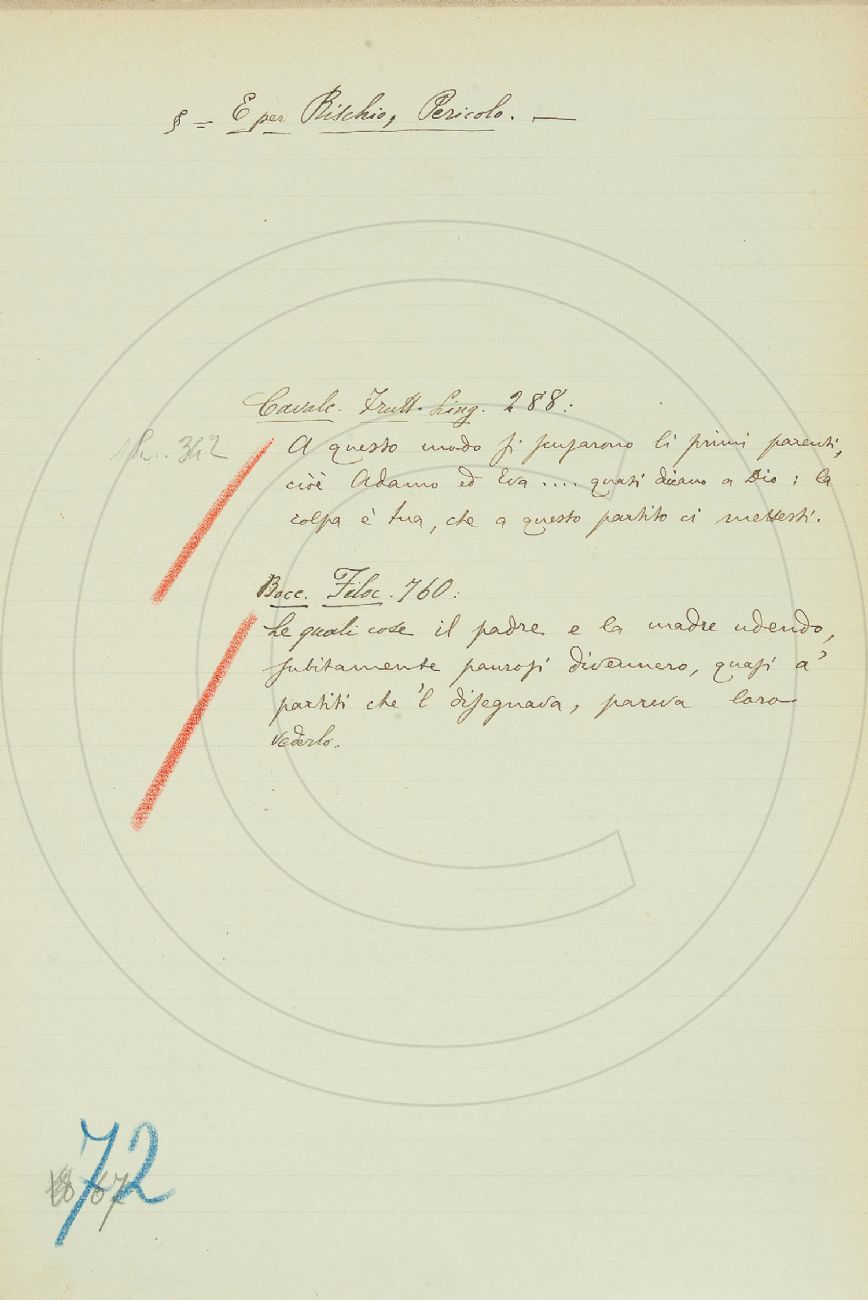 § = E per Rischio, Pericolo. —
Cavalc. Frutt. Ling. 288:
A questo modo si scusarono li primi parenti,
cioè Adamo ed Eva .... quasi dicano a Dio: la
colpa è tua, che a questo partito ci mettesti.
Bocc. Filoc. 760:
Le quali cose il padre e la madre udendo,
subitamente paurosi divennero, quasi a'
partiti che 'l disegnava, pareva loro
vederlo.
72